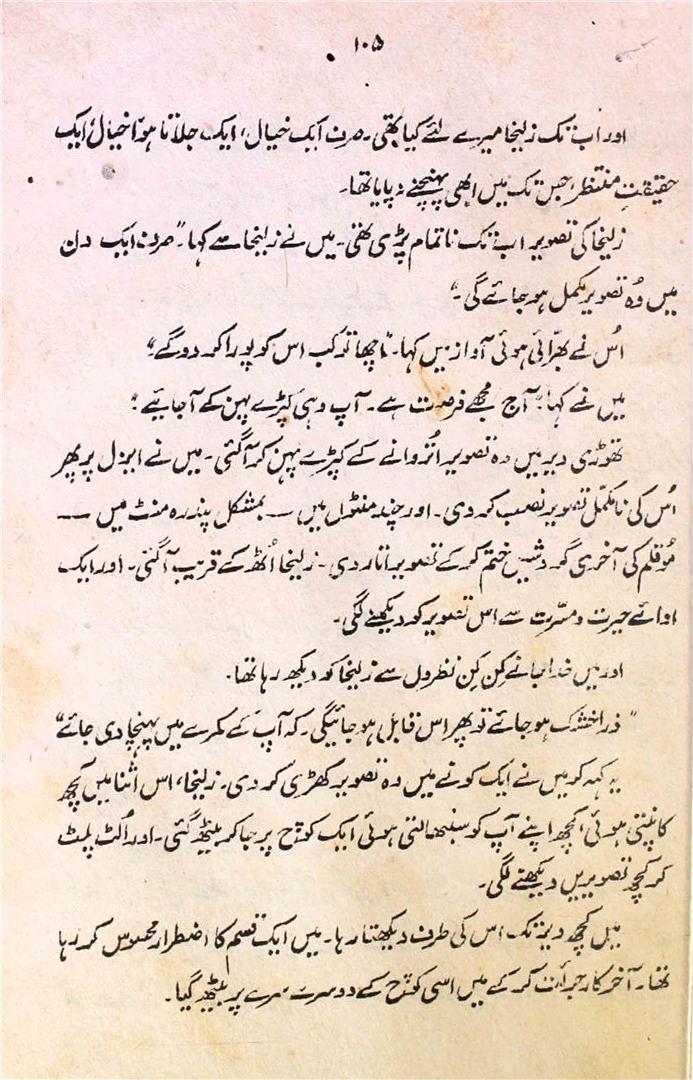 ۱۰۵
اور اب تک زلیخا میرے لئے کیا تھی۔ صرف ایک خیال، ایک جلاتا ہوا خیال، ایک
حقیقتِ منتظر، جس تک میں ابھی پہنچنے نہ پایا تھا۔
زلیخا کی تصویر اب تک ناتمام پڑی تھی۔ میں نے زلیخا سے کہا۔ "صرف ایک دن
میں وُہ تصویر مکمل ہو جائے گی۔"
اُس نے بھرّائی ہوئی آواز میں کہا۔ "اچھا تو کب اس کو پورا کر دو گے۔"
میں نے کہا۔ "آج مجھے فرصت ہے۔ آپ وہی کپڑے پہن کے آجایئے؛"
تھوڑی دیر میں وہ تصویر اتُروانے کے کپڑے پہن کر آگئی۔ میں نے ایزل پر پھر
اُس کی نامکمّل تصویر نصب کر دی۔ اور چند منٹوں میں — بمشکل پندرہ منٹ میں —
مُوقلم کی آخری گردشیں ختم کر کے تصویر اتار دی۔ زلیخا اُٹھ کے قریب آگئی۔ اور ایک
ادائے حیرت و مسّرت سے اس تصویر کو دیکھنے لگی۔
اور میں خدا جانے کِن کِن نظروں سے زلیخا کو دیکھ رہا تھا۔
"ذرا خشک ہو جائے تو پھر اس قابل ہو جائیگی۔ کہ آپ کے کمرے میں پہنچا دی جائے"
یہ کہہ کر میں نے ایک کونے میں وہ تصویر کھڑی کر دی۔ زلیخا، اس اثنا میں کُچھ
کانپتی ہوئی، کچھ اپنے آپ کو سنبھالتی ہوئی ایک کوچ پر جا کر بیٹھ گئی۔ اور اُلٹ پلٹ
کر کچھ تصویریں دیکھنے لگی۔
میں کچھ دیر تک اس کی طرف دیکھتا رہا۔ میں ایک قسم کا اضطرار محسوس کر رہا
تھا۔ آخر کار جرأت کر کے میں اسی کوچ کے دوسرے سرے پر بیٹھ گیا۔